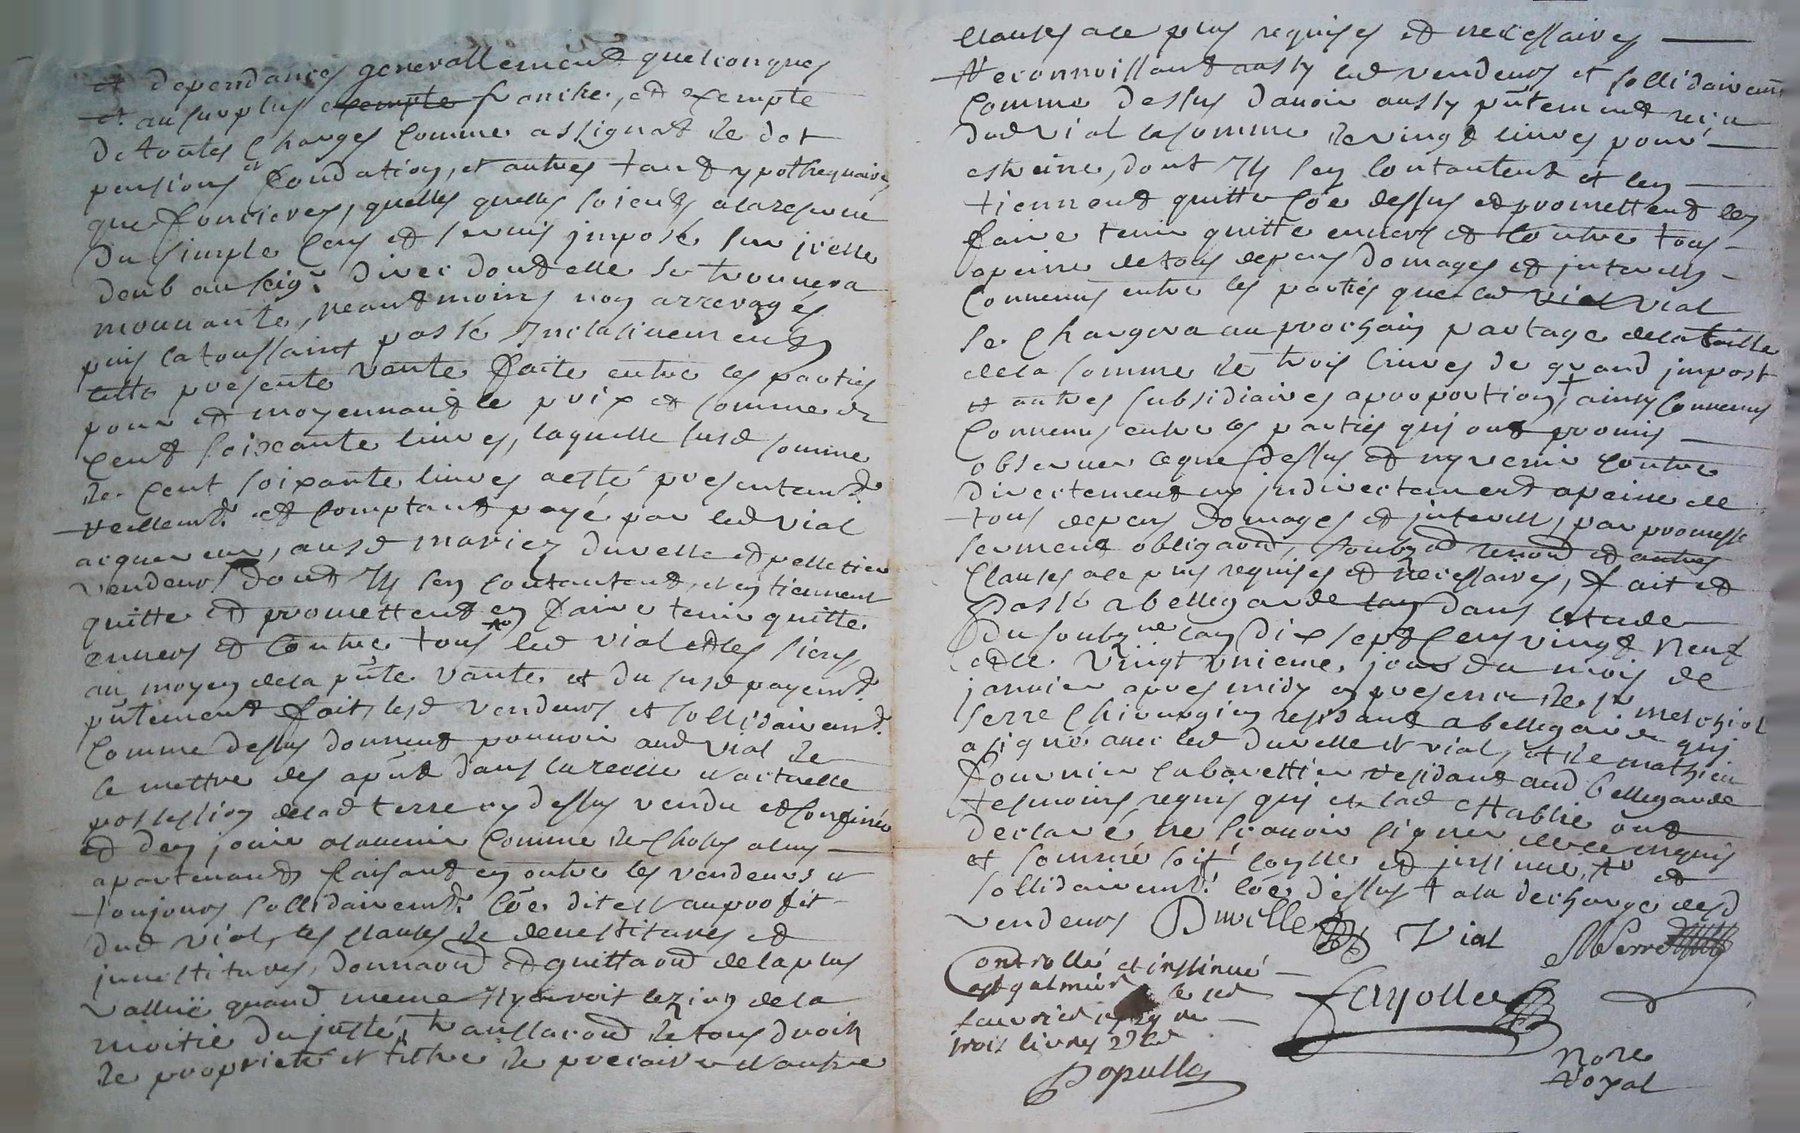 et dependances generallement quelconques
et au surplus exempte franche, et exempte
de toutes charges comme assignat de dot
pensions et fondation, et autres tant ypothequaires
que foncieres, quelles quelles soients a la reserve
du simple cens et servis imposé sur icelle
deub au seigr. direct dont elle se trouvera
mouvante, neantmoins non arreragés
puis la toussaint passé inclusivement
cette presente vante faite entre les parties
pour et moyennant le prix et somme de
cent soixante livres, laquelle susd somme
de cent soixante livres a esté presentemt.
reellemt. et comptant payé par led vial
acquereur, ausd mariez duvelle et pelletier
vendeurs dont Ils sen contantent, et en tiennent
quitte et promettent en faire tenir quitte
envers et contre tous led vial et les siens
au moyen de la pñte vante et du susd payemt.
pñtement fait, lesd vendeurs et sollidairemt.
comme dessus donnent pouvoir aud vial de
se mettre des apñt dans la reelle et actuelle
possession de lad terre cy dessus vendu et confinée
et den jouir a lavenir comme de choses a luy
apartenants faisant en outre les vendeurs et
toujours sollidairemt. cõe dit est au proffit
dud vial, les clauses de devestitures et
investitures, donnaond et quittaond de la plus
vallue quand meme Il y auroit lezion de la
moitié du juste, translaond de tous droits
de proprieté et tiltre de precaire et autre
clauses a ce plus requises et necessaires
Reconnoissant aussy led vendeurs et sollidairemt
comme dessus davoir aussy pñtement reçu
dud vial la somme de vingt livres pour
estreine, dont Ils sen contantent et len
tiennent quitte cõe dessus et promettent len
faire tenir quitte envers et contre tous
a peine de tous depens domages et interests
convenus entre les parties que led vial vial
se chargera au prochain partage de la taille
de la somme de trois livres de grand impost
et autres subsidiaires a proportion + ainsy convenus
convenus entre les parties qui ont promis
observer ce que dessus et ny venir contre
directement ny indirectement a peine de
tous depens domages et interests, par promesse
serment obligaond, soubzond renond et autres
clauses a ce plus requises et necessaires, fait et
passé a bellegarde lan dans letude
du soubzne lan dix sept cens vingt neuf
et le vingt unieme jour du mois de
janvier apres midy en presence de sr melchiol
serre chirurgien residant a bellegarde qui
a signé avec led duvelle et vial, et de mathieu
fournier cabarettier residant aud bellegarde
tesmoins requis qui et lad ettablie ont
declaré ne scavoir signer de ce enquis
et sommé soit scellé et insinué, et
sollidairemt. cõe dessus + a la decharge desd
vendeurs Duvelle Vial MSerre
Controllé et insinué
a st galmier le
fevrier 1729 re
trois livres
Fayolle
Nore
Royal
Populle